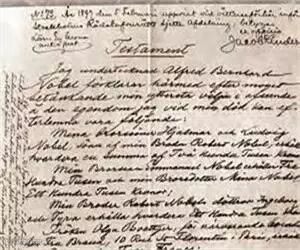 No 73. År 1897 den 5 Februari uppvist vid vittnesförhör inför
Stockholms Rådstufvurätts sjette Afdelning; betygar
Jacob
Testament
Jag undertecknad Alfred Bernhard
Nobel förklarar härmed efter moget
betänkande min yttersta vilja i afseende
å den egendom jag vid min död kan ef-
terlemna vara följande:
Mina Brorsöner Hjalmar och Ludvig
Nobel, söner af min Broder Robert Nobel, erhålla
hvardera en summa af Två Hundra Tusen Kronor
Min Brorson Emmanuel Nobel erhåller Tre
Hundra Tusen och min Brorsdotter Mina Nobel
Ett Hundra Tusen Kronor;
Min Broder Robert Nobels döttrar Ingeborg
och Tyra erhålla hvardera Ett Hundra Tusen
Fröken Olga Boettger, för närvarande boende
10 Rue St Florentin, Paris,